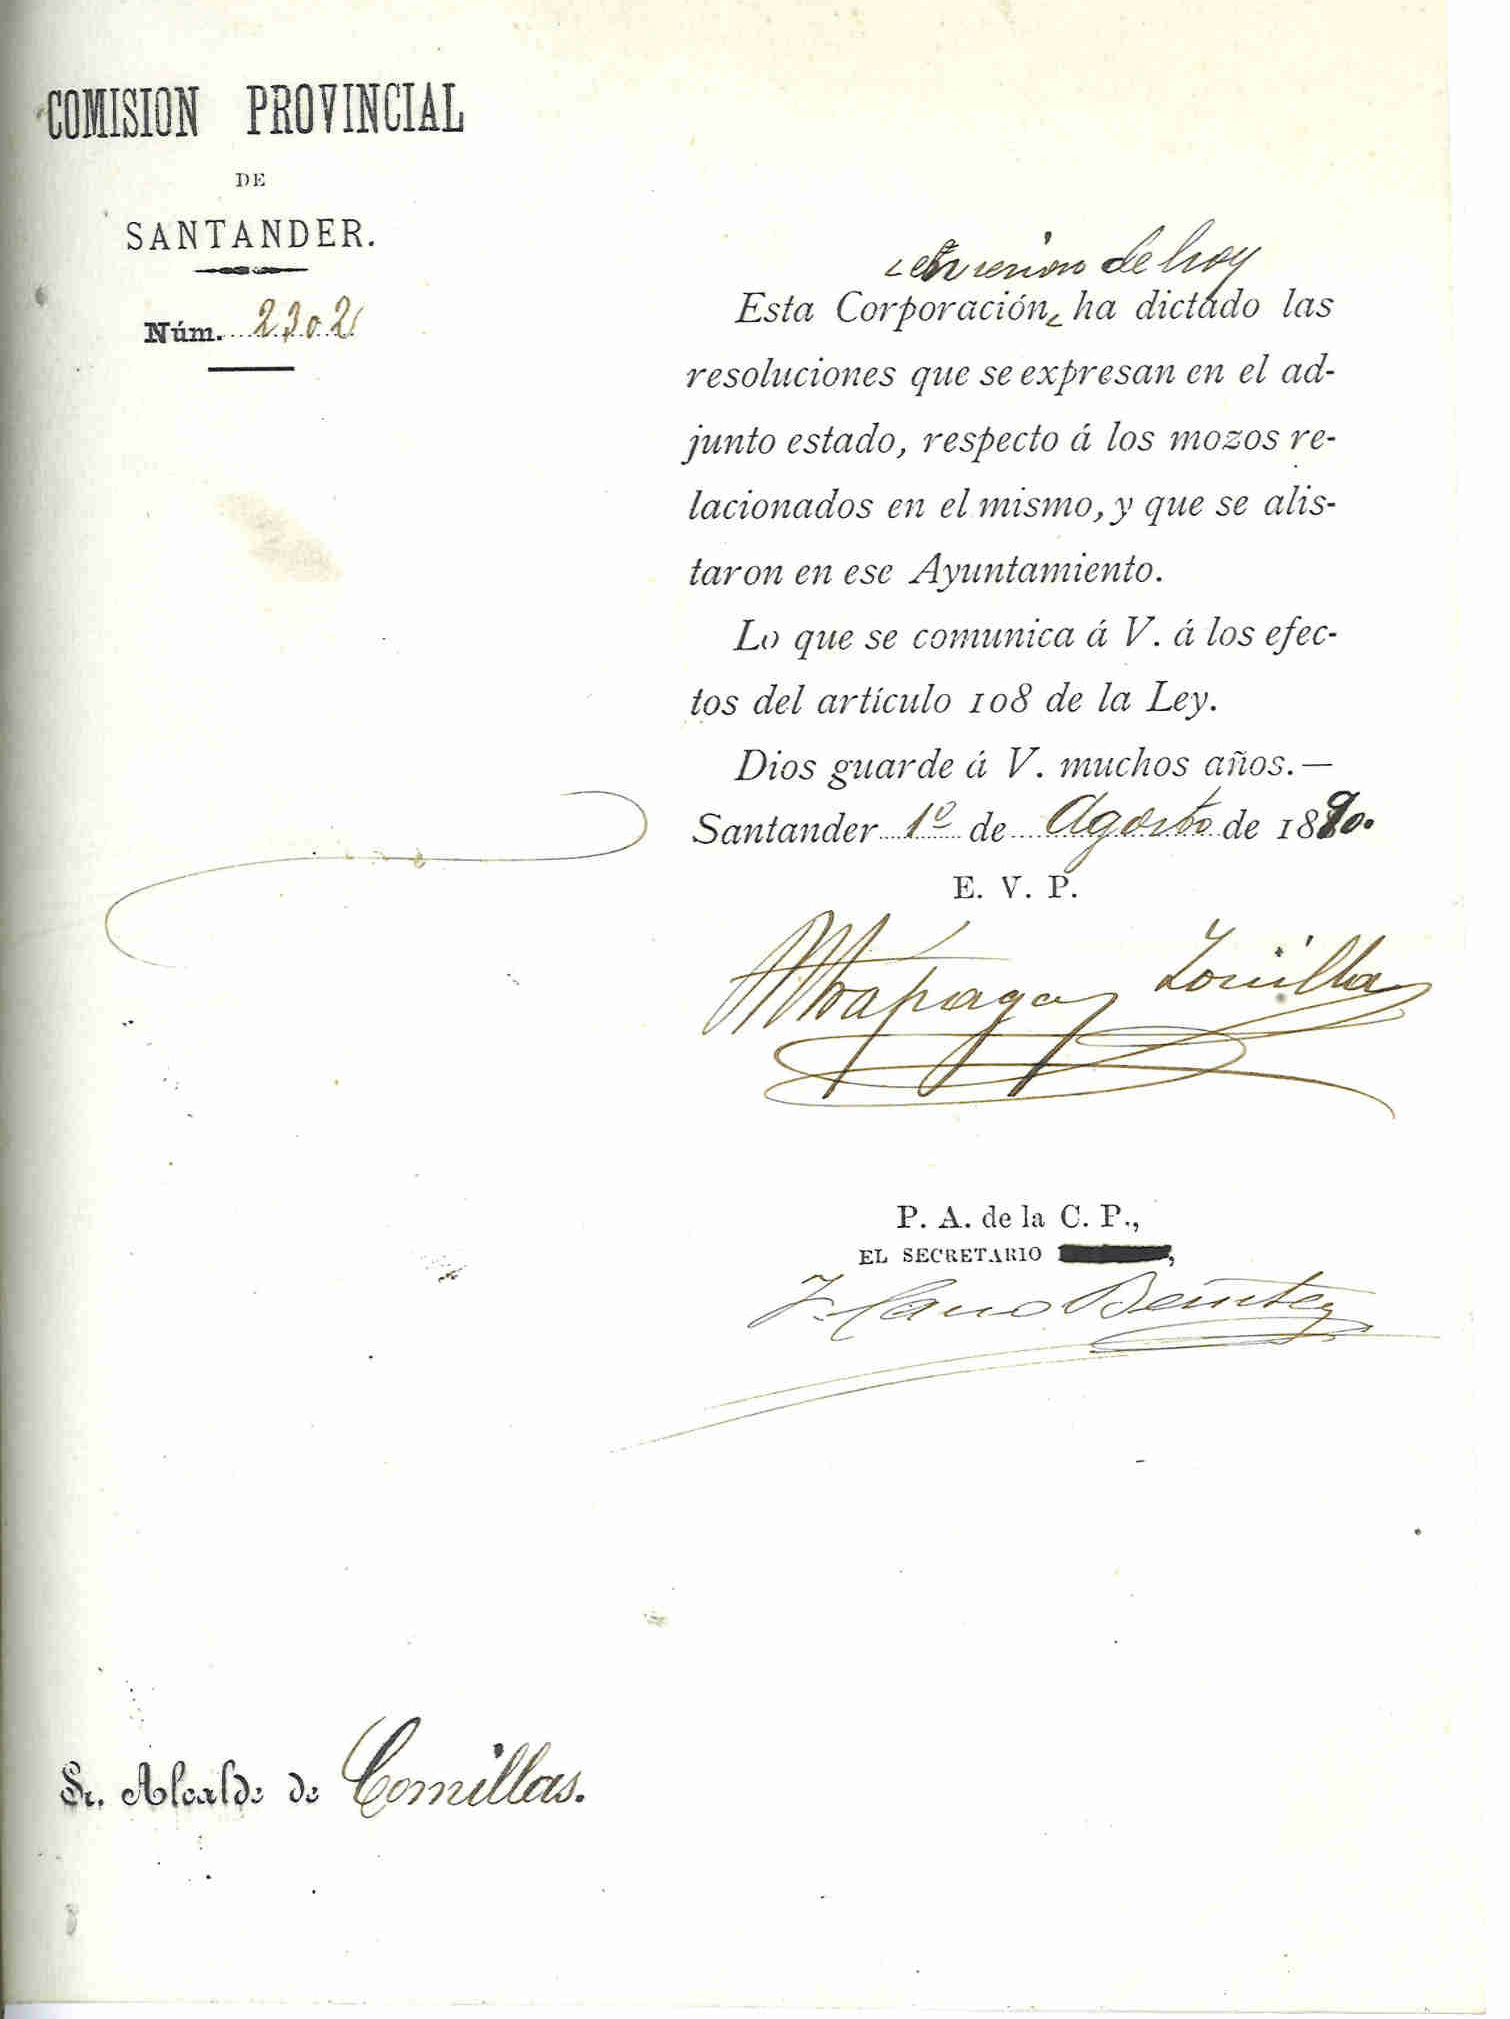 COMISION PROVINCIAL
DE
SANTANDER.
Núm. 2302
en sesión de hoy
Esta Corporación, ha dictado las
resoluciones que se expresan en el ad-
junto estado, respecto á los mozos re-
lacionados en el mismo, y que se alis-
taron en ese Ayuntamiento.
Lo que se comunica á V. á los efec-
tos del artículo 108 de la Ley.
Dios guarde á V. muchos años.—
Santander 1º de Agosto de 1890.
E. V. P.
Zorrilla
P. A. de la C. P.,
EL SECRETARIO
Cano Benitez
Sr. Alcalde de Comillas.